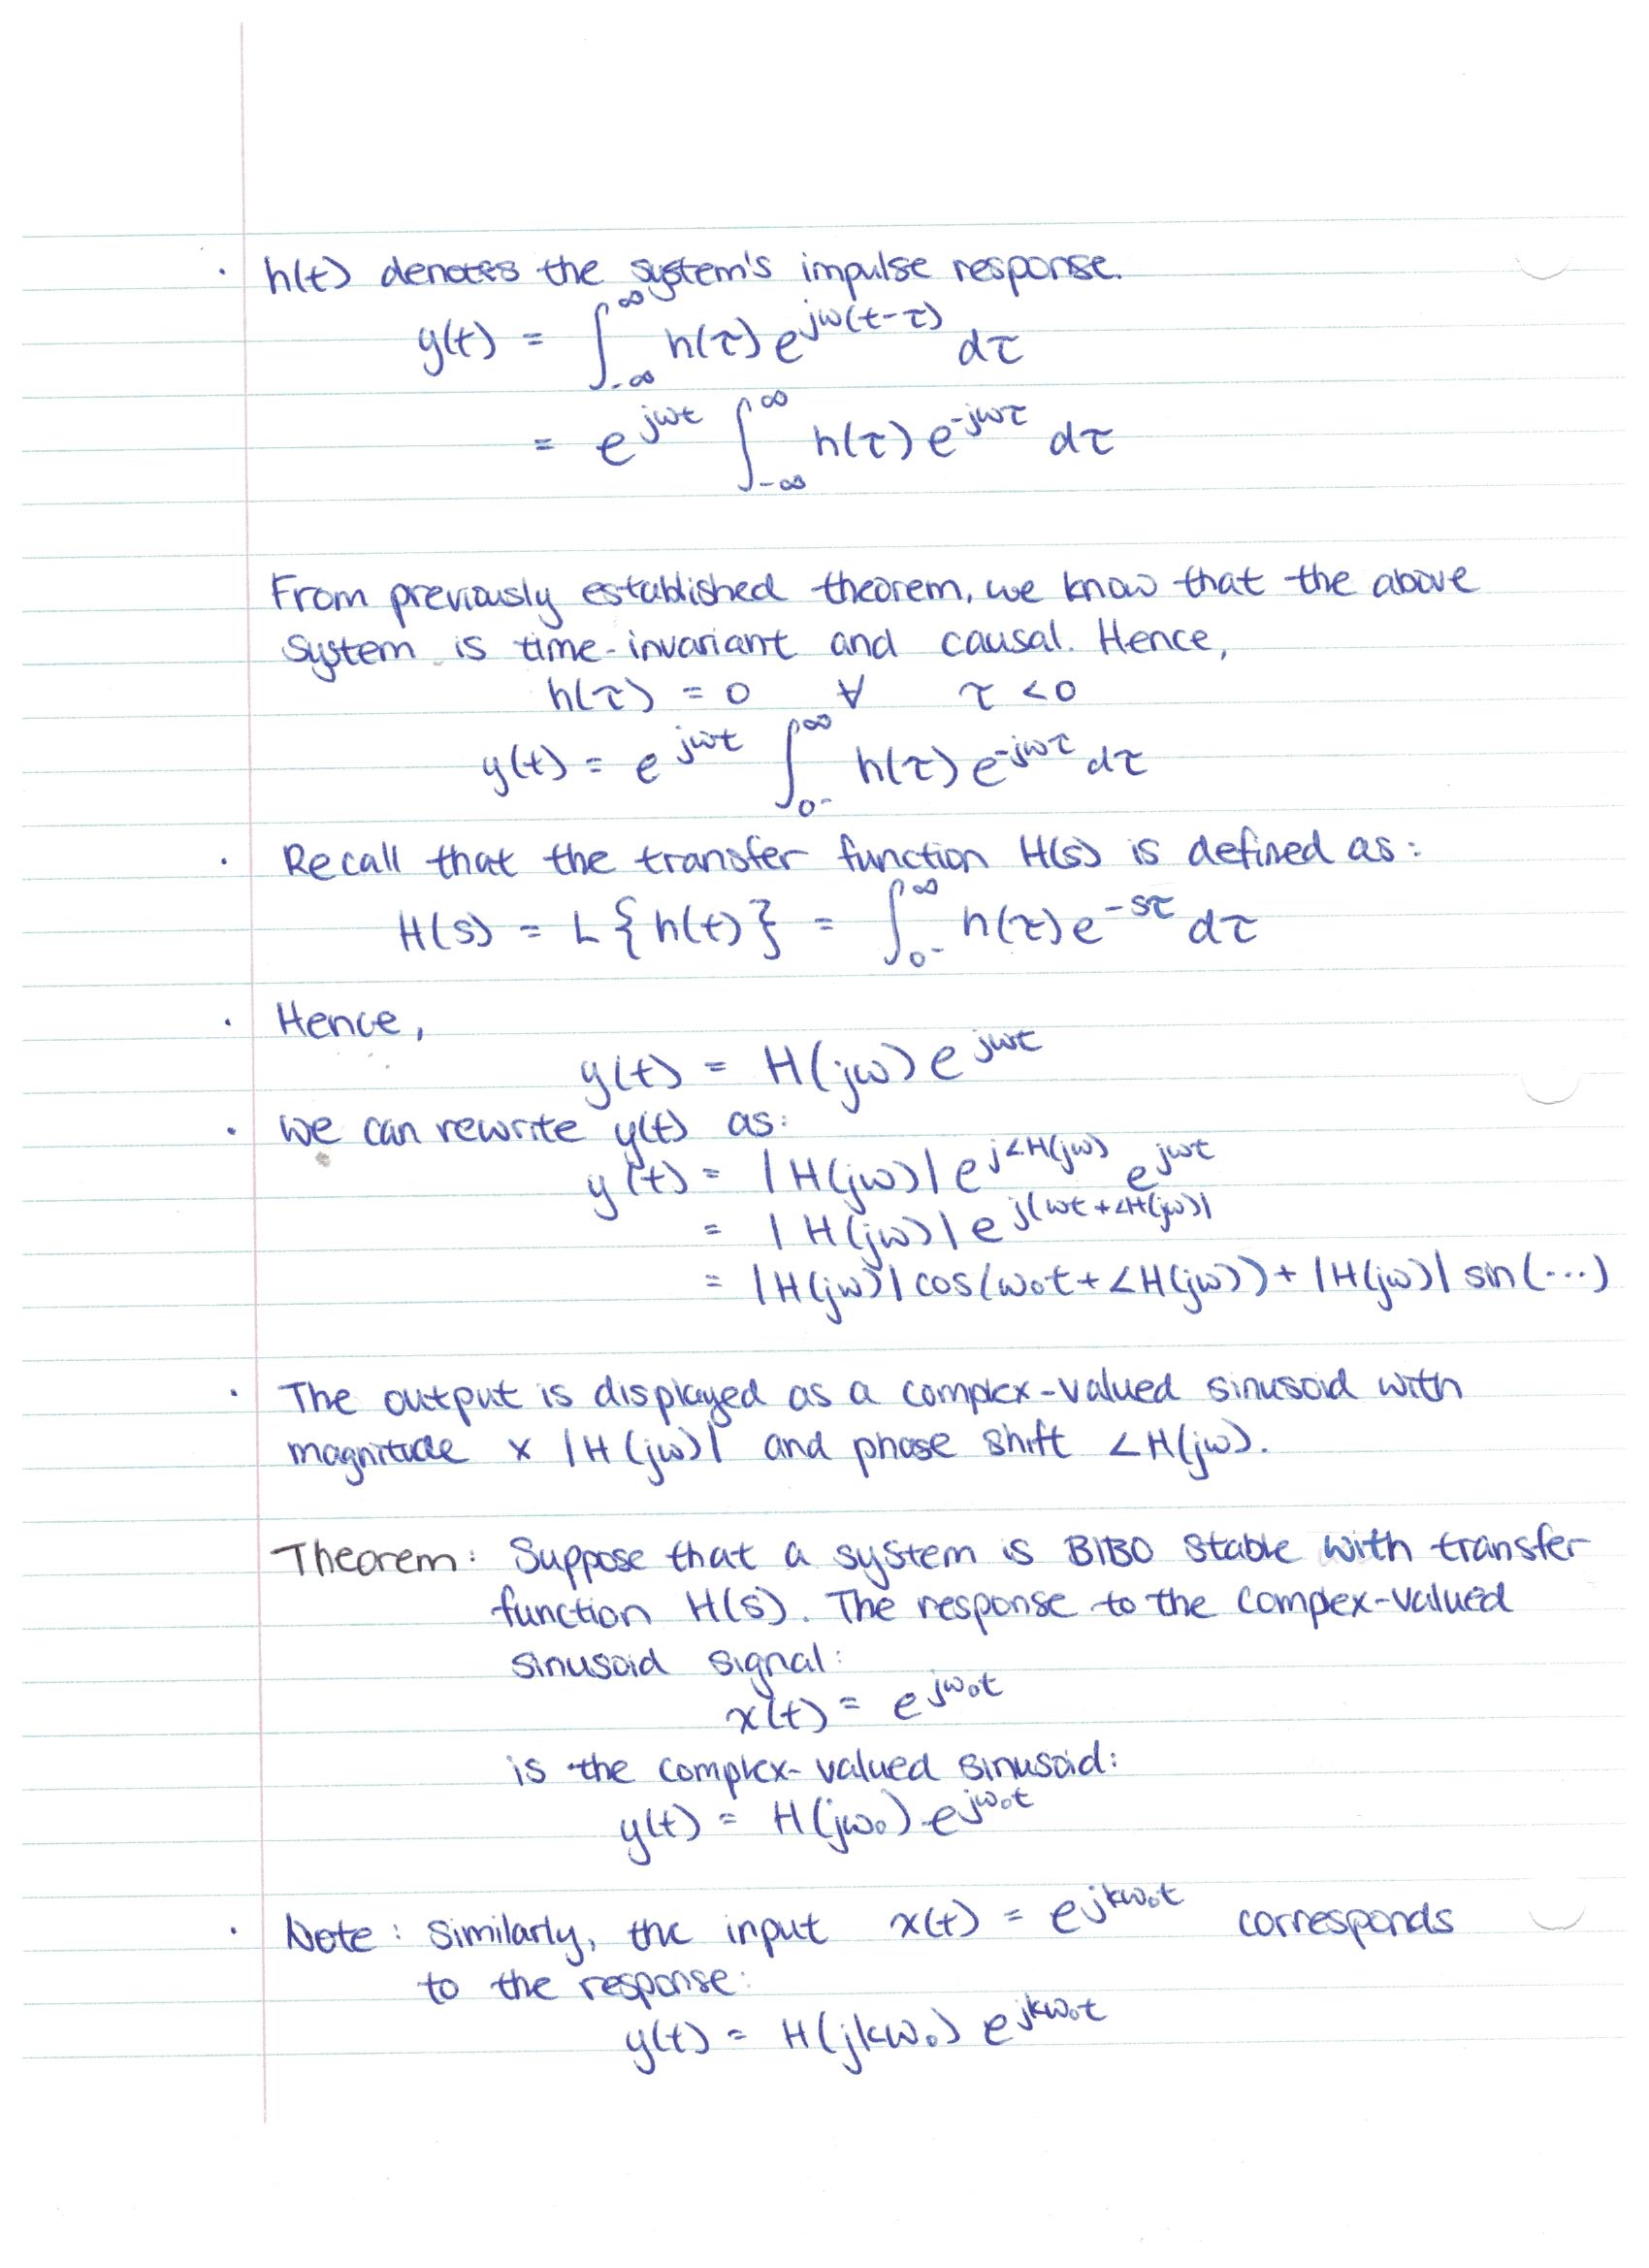 · h(t) denotes the system's impulse response.
y(t) = ∫_{-∞}^{∞} h(τ) e^{jω(t-τ)} dτ
= e^{jωt} ∫_{-∞}^{∞} h(τ) e^{-jωτ} dτ
From previously established theorem, we know that the above
system is time-invariant and causal. Hence,
h(τ) = 0 ∀ τ < 0
y(t) = e^{jωt} ∫_{0^-}^{∞} h(τ) e^{-jωτ} dτ
· Recall that the transfer function H(s) is defined as:
H(s) = L{h(t)} = ∫_{0^-}^{∞} h(τ) e^{-sτ} dτ
· Hence,
y(t) = H(jω) e^{jωt}
· We can rewrite y(t) as:
y(t) = |H(jω)| e^{j∠H(jω)} e^{jωt}
= |H(jω)| e^{j(ωt+∠H(jω))}
= |H(jω)| cos(ω₀t + ∠H(jω)) + |H(jω)| sin(...)
· The output is displayed as a complex-valued sinusoid with
magnitude x |H(jω)| and phase shift ∠H(jω).
Theorem: Suppose that a system is BIBO stable with transfer
function H(s). The response to the complex-valued
sinusoid signal:
x(t) = e^{jω₀t}
is the complex-valued sinusoid:
y(t) = H(jω₀) e^{jω₀t}
· Note: Similarly, the input x(t) = e^{jkω₀t} corresponds
to the response:
y(t) = H(jkω₀) e^{jkω₀t}